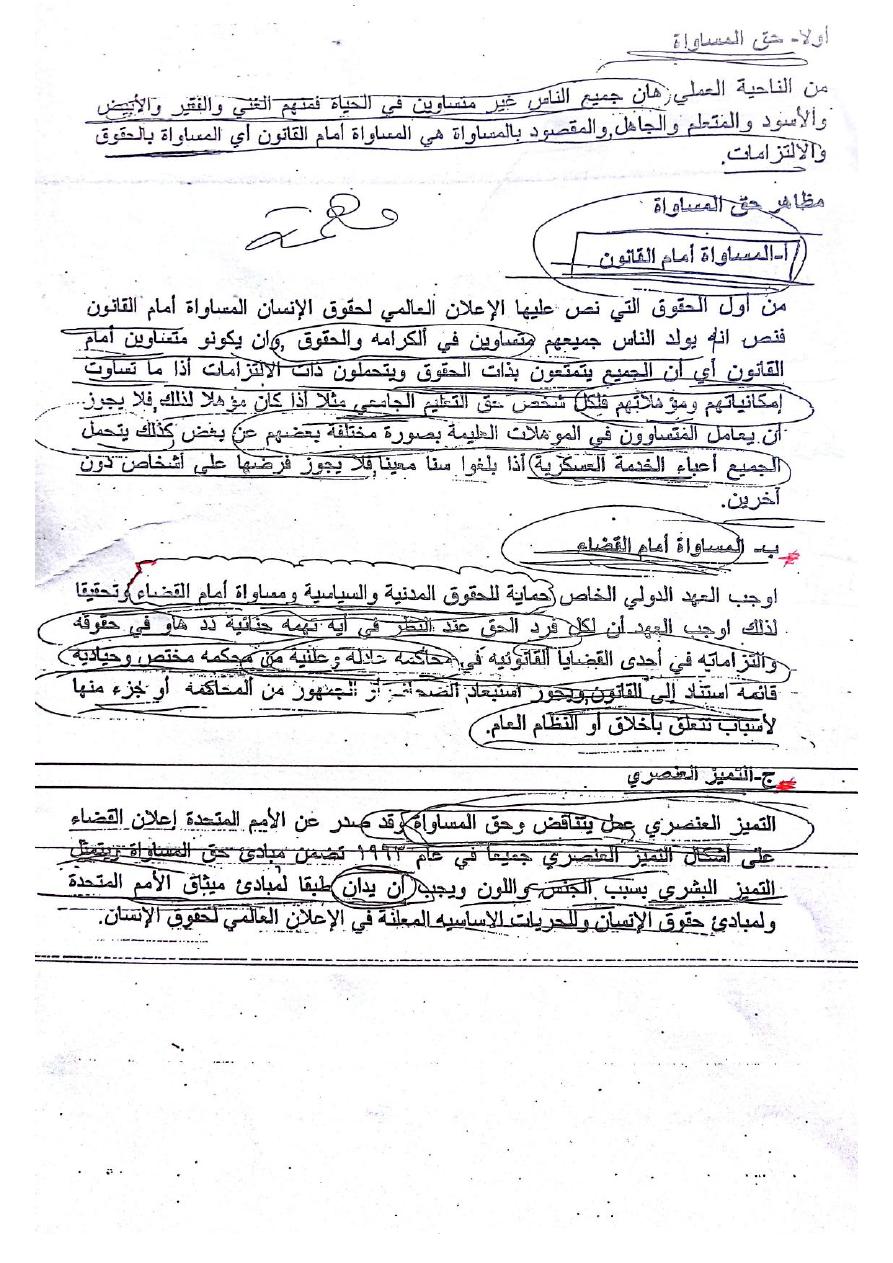 أولا- حق المساواة
من الناحية العملي هان جميع الناس غير متساوين في الحياة فمنهم الغني والفقير والأبيض
والأسود والمتعلم والجاهل والمقصود بالمساواة هي المساواة أمام القانون أي المساواة بالحقوق
والالتزامات.
مظاهر حق المساواة
مهمة
أ-المساواة أمام القانون
من أول الحقوق التي نص عليها الإعلان العالمي لحقوق الإنسان المساواة أمام القانون
فنص انه يولد الناس جميعهم متساوين في الكرامه والحقوق وان يكونو متساوين أمام
القانون أي أن الجميع يتمتعون بذات الحقوق ويتحملون ذات الالتزامات أذا ما تساوت
إمكانياتهم ومؤهلاتهم فلكل شخص حق التعليم الجامعي مثلا اذا كان مؤهلا لذلك, فلا يجوز
أن يعامل المتساوون في الموهلات العليمة بصورة مختلفة بعضهم عن بعض كذلك يتحمل
الجميع أعباء الخدمة العسكرية أذا بلغوا سنا معينا, فلا يجوز فرضها على أشخاص دون
آخرين.
ب- المساواة أمام القضاء
اوجب العهد الدولي الخاص حماية للحقوق المدنية والسياسية ومساواة أمام القضاء وتحقيقا
لذلك اوجب العهد أن لكل فرد الحق عند النظر في أيه تهمه جنائية ضد هاو في حقوقه
والتزاماته في أحدى القضايا القانونيه في محاكمه عادله وعلنية من محكمه مختص وحياديه
قائمه استناد إلى القانون ويجوز استبعاد الصحافة أو الجمهور من المحاكمه أو جزء منها
لأسباب تتعلق بأخلاق أو النظام العام.
ج-التميز العنصري
التميز العنصري عمل يتناقض وحق المساواة وقد صدر عن الأمم المتحدة إعلان القضاء
على أشكال التميز العنصري جميعا في عام ١٩٦٣ تضمن مبادئ حق المساواة ويتمثل
التميز البشري بسبب الجنس واللون ويجب أن يدان طبقا لمبادئ ميثاق الأمم المتحدة
ولمبادئ حقوق الإنسان وللحريات الاساسيه المعلنة في الإعلان العالمي لحقوق الإنسان.